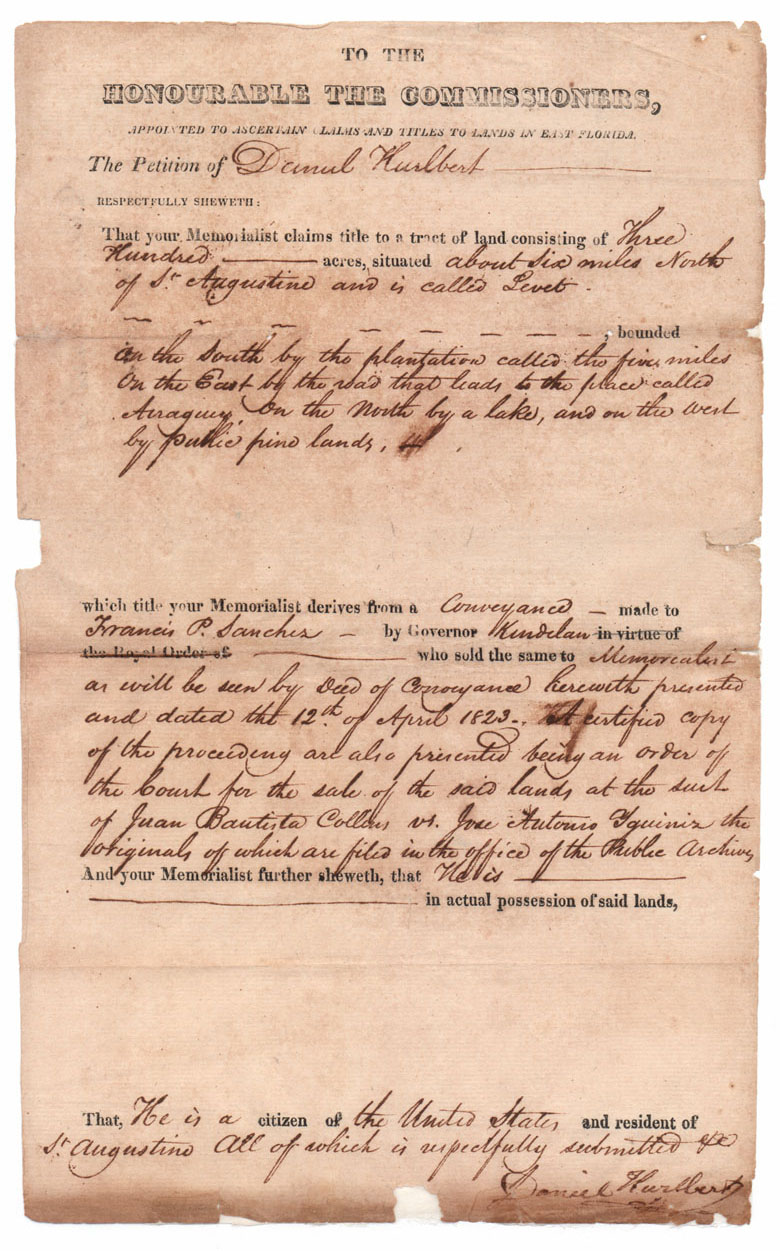 TO THE
HONOURABLE THE COMMISSIONERS,
APPOINTED TO ASCERTAIN CLAIMS AND TITLES TO LANDS IN EAST FLORIDA.
The Petition of Daniel Hurlbert
RESPECTFULLY SHEWETH:
That your Memorialist claims title to a tract of land consisting of Three
Hundred acres, situated about six miles North
of St Augustine and is called Levet.
, bounded
on the South by the plantation called the five miles
On the East by the road that leads to the place called
Araquey, On the North by a lake, and on the West
by public pine lands.
which title your Memorialist derives from a Conveyance – made to
Francis P. Sanchez – by Governor Kindelan in virtue of
the Royal Order of who sold the same to Memorealist
as will be seen by Deed of Conveyance herewith presented
and dated the 12th of April 1823. A certified copy
of the proceeding are also presented being an order of
the Court for the sale of the said lands at the suit
of Juan Bautista Collins vs. Jose Antonio Yguiniz the
originals of which are filed in the office of the Public Archives
And your Memorialist further sheweth, that He is
in actual possession of said lands,
That, He is a citizen of the United States and resident of
St Augustine All of which is respectfully submitted &c
Daniel Hurlbert